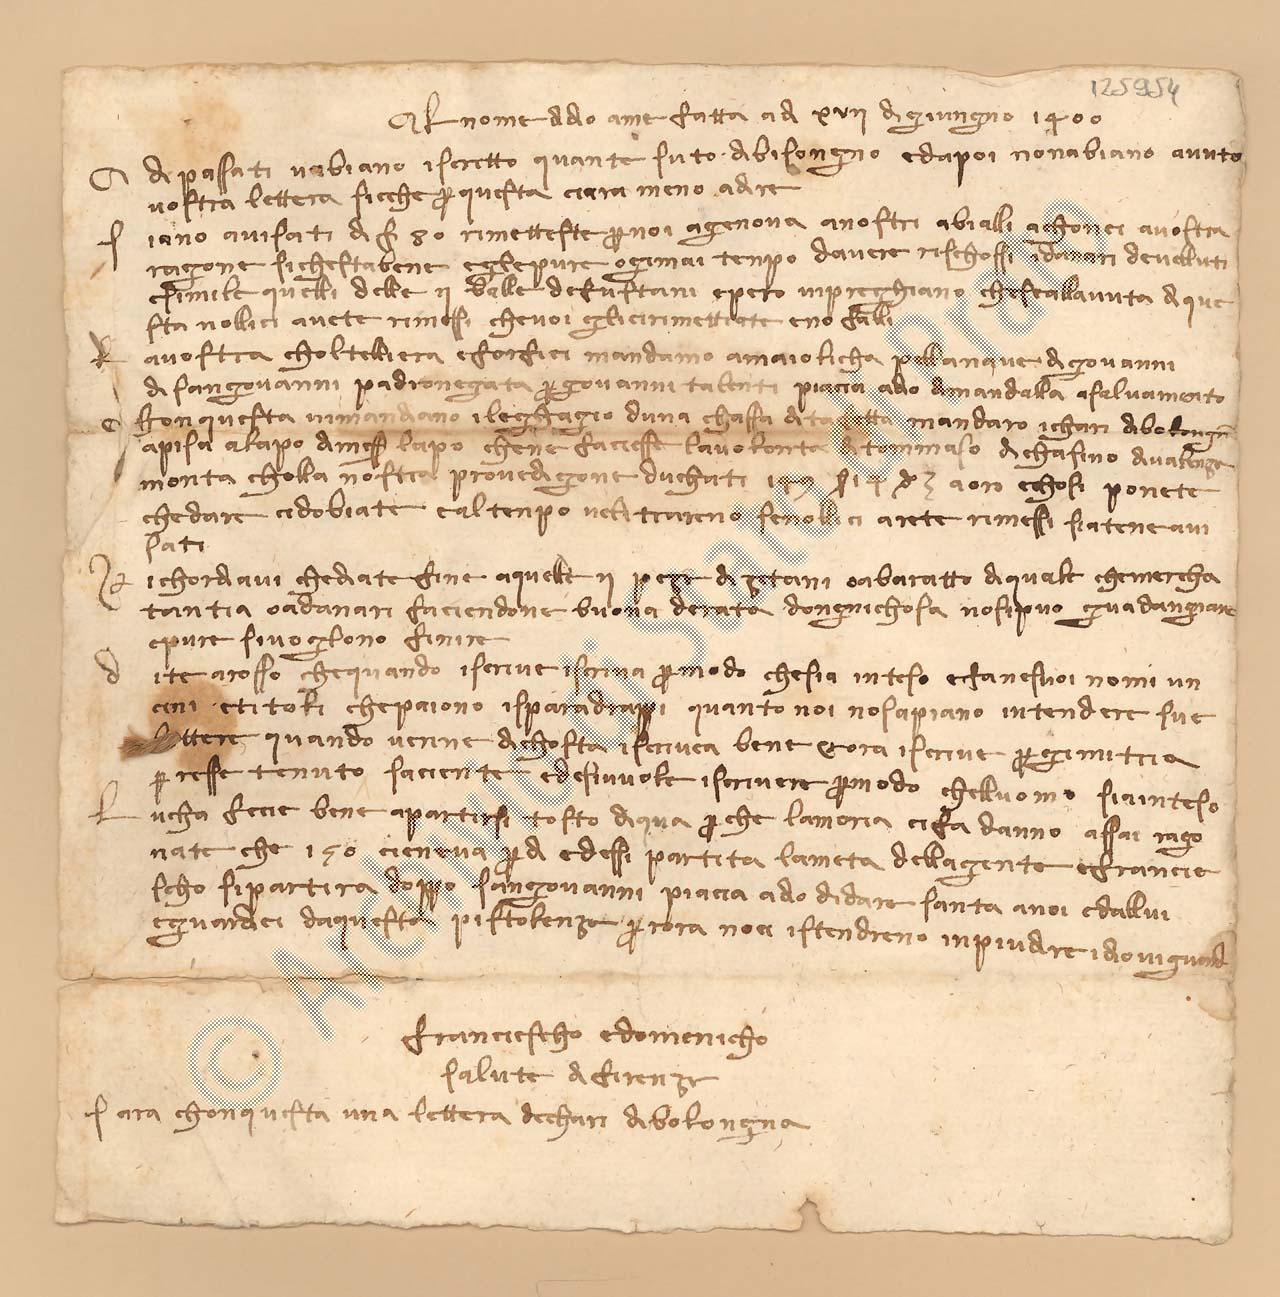 125954
Al nome di Dio ame fatta adi xvii di giungno 1400
A dì passati vabiano iscritto quante suto di bisongno e dapoi nonabiano avuto
vostra lettera sicche p questa ciara meno a dire
S iano avisati di f 80 rimetteste p noi agenova anostri abialli achonci avostra
ragone si che sta bene egle pure ogimai tenpo davere rischossi i danari de velluti
e simile quelli delle ii balle de fustani e pero inpreghiano che se allavuta di que
sta nolli ci avete rimessi che voi gli ci rimettiate e no falli
L a vostra choltelliera e forfici mandamo amaiolicha p llanque di govanni
di sangovanni padronegata p govanni talenti piacia a dio di mandalla a salvamento
C on questa vi mandiano i leghagio duna chassa di taffetta mandaro i chari di bolongna
a pisa a lapo di mess lapo che ne faciesse la volonta di tommaso di chasino di valenze
monta cholla nostra provedigone duchati a oro e chosi ponete
che dare ci dobiate e al tenpo ve li trareno se nolli ci arete rimessi siatene avi
sati
R ichordiavi che diate fine a quelle ii peze di zetani o abaratto di qualche mercha
tantia o a danari faciendone buona derata dongni chosa no si puo guadangniare
e pure si voglono finire
D ite a rosso che quando iscrive iscriva p modo che sia inteso e fa ne suoi nomi un
cini e titoli che paiono isparadrappi quanto noi no sapiano intendere sue
lettere quando venne di chosta iscrivea bene e ora iscrive p gimitria
p esse tenuto saciente e de si vuole iscrivere p modo chelluomo sia inteso
L ucha fecie bene a partirsi tosto di qua p che la moria ci fa danno assai rago
nate che 150 cieneva p dì ed essi partita la meta della gente e francie
scho si partira doppo sangovanni piacia a dio di dare santa a noi e dallui
e guardi ci da questa pistolenze p ora no ci istendreno in piu dire idio vi guardi
franciescho e domenicho
salute di firenze
S ara chon questa una lettera de chari di bolongna
© Archivio di Stato di Prato